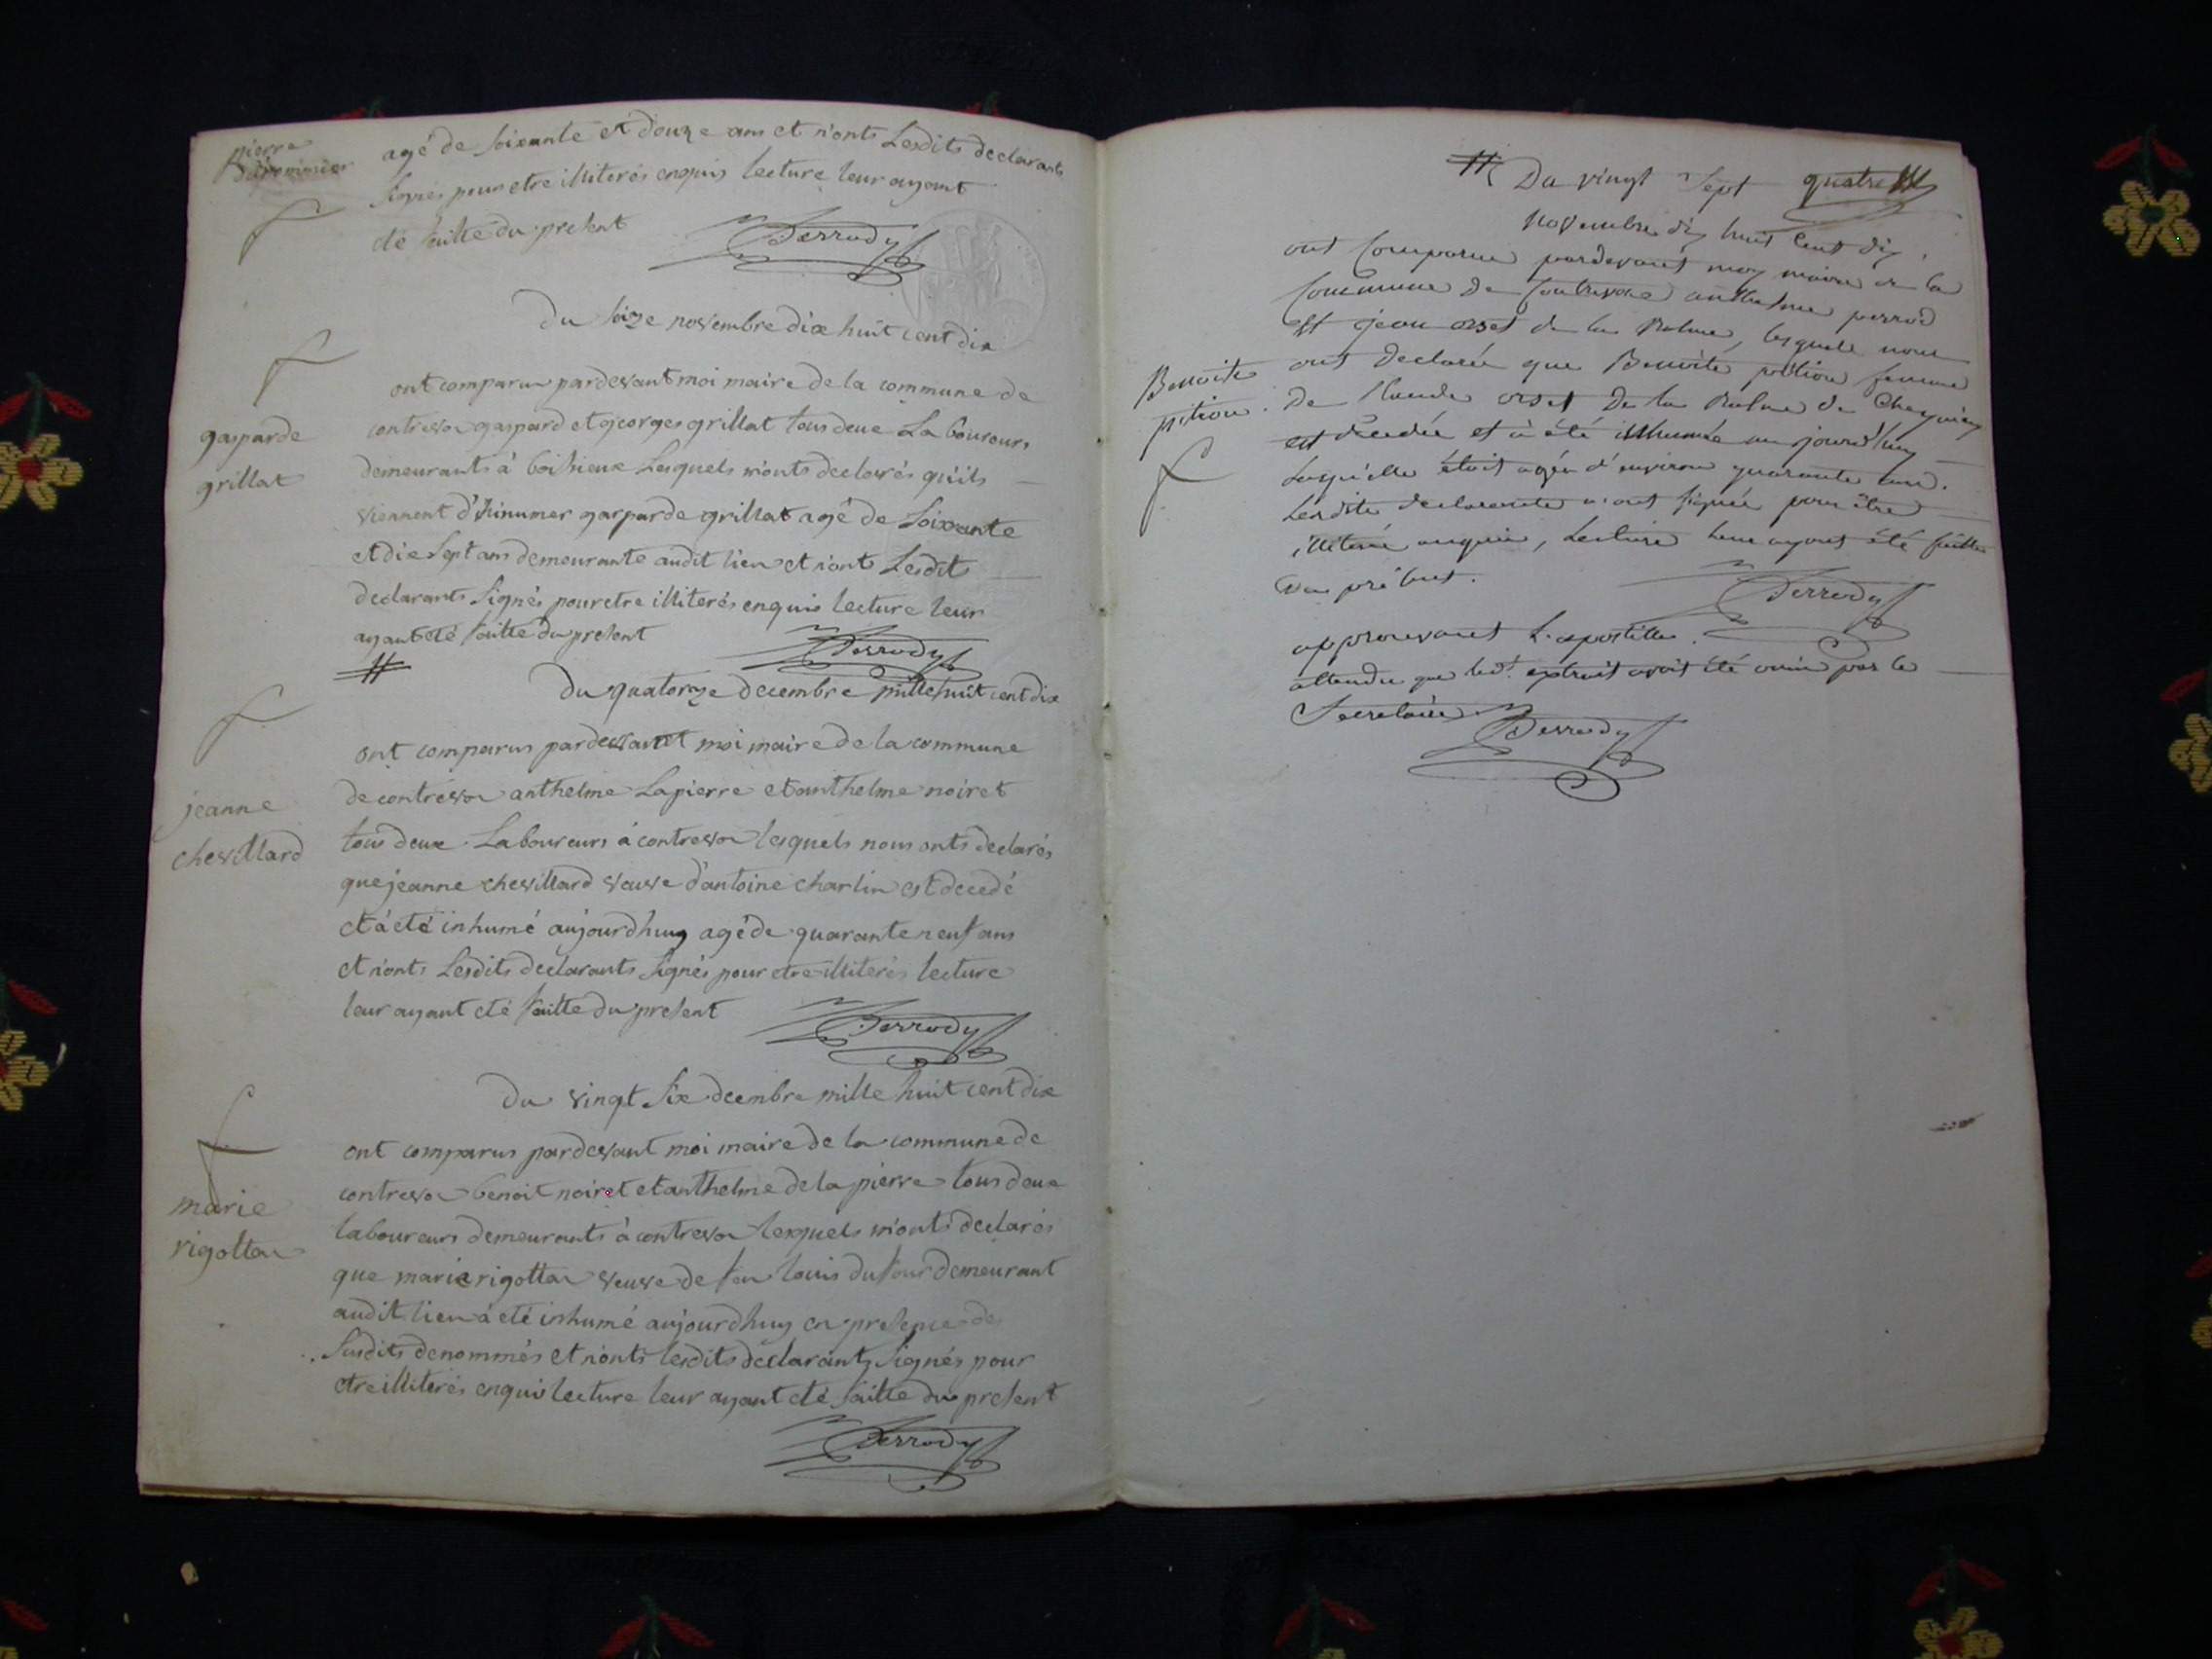 pierre
agé de soixante et douze ans et n'onts Lesdits declarants
signés pour etre illiterés enquis lecture leur ayant
eté faitte du present
Perrody
Du seize novembre dix huit cent dix
gasparde
grillat
ont comparu pardevant moi maire de la commune de
contrevoz gaspard et georges grillat tous deux Laboureurs
demeurants à boissieux Lesquels m'onts declarés qu'ils
viennent d'hinumer gasparde grillat agé de soixante
et dix sept ans demeurante audit lieu et n'onts Lesdits
declarants signés pour etre illiterés enquis lecture leur
ayant eté faitte du present
Perrody
Du quatorze decembre mille huit cent dix
jeanne
chevillard
ont comparus pardevant moi maire de la commune
de contrevoz anthelme Lapierre et anthelme noiret
tous deux Laboureurs à contrevoz lesquels nous onts declarés
que jeanne chevillard veuve d'antoine charlin est decedé
et à eté inhumé aujourdhuy agé de quarante neuf ans
et n'onts Lesdits declarants signés pour etre illiterés lecture
leur ayant eté faitte du present
Perrody
Du vingt six decembre mille huit cent dix
marie
rigottaz
ont comparus pardevant moi maire de la commune de
contrevoz benoit noiret et anthelme de la pierre tous deux
laboureurs demeurants à contrevoz lesquels m'onts declarés
que marie rigottaz veuve de feu louis dufour demeurant
audit lieu à eté inhumé aujourdhuy en presence des
susdits denommés et n'onts lesdits declarants signés pour
etre illiterés enquis lecture leur ayant eté faitte du present
Perrody
Du vingt sept quatre
novembre dix huit cent dix
ont comparu pardevant moy maire de la
Commune de Contrevoz anthelme perrod
et jean orset de la Balme, lesquels nous
Benoite
pition
ont declaré que Benoite pition femme
De Claude orset De la Balme de
est decedée et à été inhumée aujourd'huy
Laquelle étoit agée d'environ quarante ans.
Lesdits declarants n'ont signée pour être
illiteré enquis, Lecture leur ayant été faitte
du présent.
Perrody
approuvant l'apostille.
attendu que led.t extrait avoit été omis par le
Secretaire
Perrody